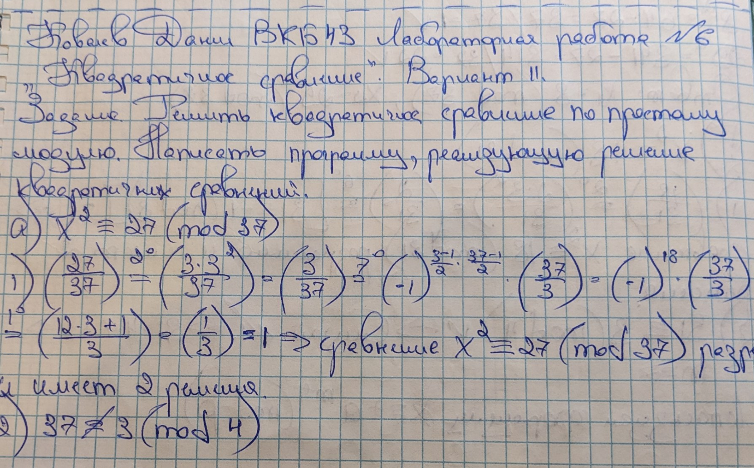 Ковалев Данил ВКБ43 Лабораторная работа №6
"Квадратичное сравнение". Вариант 11.
Задание Решить квадратичное сравнение по простому
модулю. Написать программу, реализующую решение
квадратичных сравнений.
а) x² ≡ 27 (mod 37)
1) (27/37) 2°= (3·3²/37) = (3/37) 7°= (-1)^((3-1)/2 · (37-1)/2) · (37/3) = (-1)^18 · (37/3)
1°= (12·3+1/3) = (1/3) = 1 ⇒ сравнение x² ≡ 27 (mod 37) разр
и имеет 2 решения.
2) 37 ≢ 3 (mod 4)